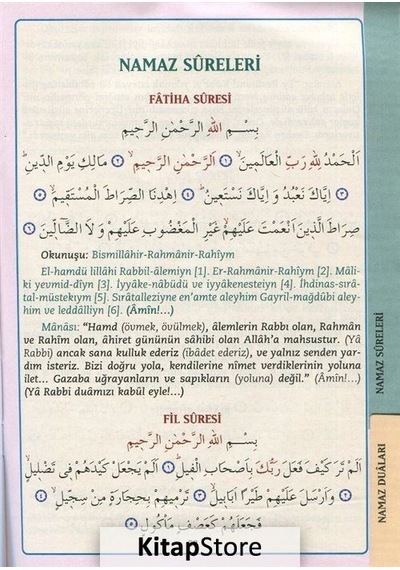 NAMAZ SÛRELERİ
FÂTİHA SÛRESİ
بِسْمِ اللهِ الرَّحْمٰنِ الرَّحِيمِ
اَلْحَمْدُ لِلّٰهِ رَبِّ الْعَالَمِينَۙ ﴿١﴾ اَلرَّحْمٰنِ الرَّحِيمِۙ ﴿٢﴾ مَالِكِ يَوْمِ الدِّينِۜ
﴿٣﴾ اِيَّاكَ نَعْبُدُ وَ اِيَّاكَ نَسْتَعِينُۜ ﴿٤﴾ اِهْدِنَا الصِّرَاطَ الْمُسْتَقِيمَۙ ﴿٥﴾
صِرَاطَ الَّذِينَ اَنْعَمْتَ عَلَيْهِمْۙ غَيْرِ الْمَغْضُوبِ عَلَيْهِمْ وَ لَا الضَّالِّينَ ﴿٦﴾
Okunuşu: Bismillâhir-Rahmânir-Rahîym
El-hamdü lillâhi Rabbil-âlemiyn [1]. Er-Rahmânir-Rahîym [2]. Mâli-
ki yevmid-dîyn [3]. İyyâke-nâbüdü ve iyyâkenesteiyn [4]. İhdinas-sırâ-
tal-müstekıym [5]. Sırâtalleziyne en'amte aleyhim Gayril-mağdûbi aley-
him ve leddâlliyn [6]. (Âmîn!...)
Mânâsı: "Hamd (övmek, övülmek), âlemlerin Rabbı olan, Rahmân
ve Rahîm olan, âhiret gününün sâhibi olan Allâh'a mahsustur. (Yâ
Rabbi) ancak sana kulluk ederiz (ibâdet ederiz), ve yalnız senden yar-
dım isteriz. Bizi doğru yola, kendilerine nîmet verdiklerinin yoluna
ilet... Gazaba uğrayanların ve sapıkların (yoluna) değil." (Âmîn!...)
(Yâ Rabbi duâmızı kabûl eyle!...)
FİL SÛRESİ
بِسْمِ اللهِ الرَّحْمٰنِ الرَّحِيمِ
اَلَمْ تَرَ كَيْفَ فَعَلَ رَبُّكَ بِاَصْحَابِ الْفِيلِۜ ﴿١﴾ اَلَمْ يَجْعَلْ كَيْدَهُمْ فِى تَضْلِيلٍۙ
﴿٢﴾ وَاَرْسَلَ عَلَيْهِمْ طَيْرًا اَبَابِيلَۙ ﴿٣﴾ تَرْمِيهِمْ بِحِجَارَةٍ مِنْ سِجِّيلٍۙ ﴿٤﴾
فَجَعَلَهُمْ كَعَصْفٍ مَأْكُولٍ
NAMAZ SÛRELERİ
NAMAZ DUÂLARI
KitapStore